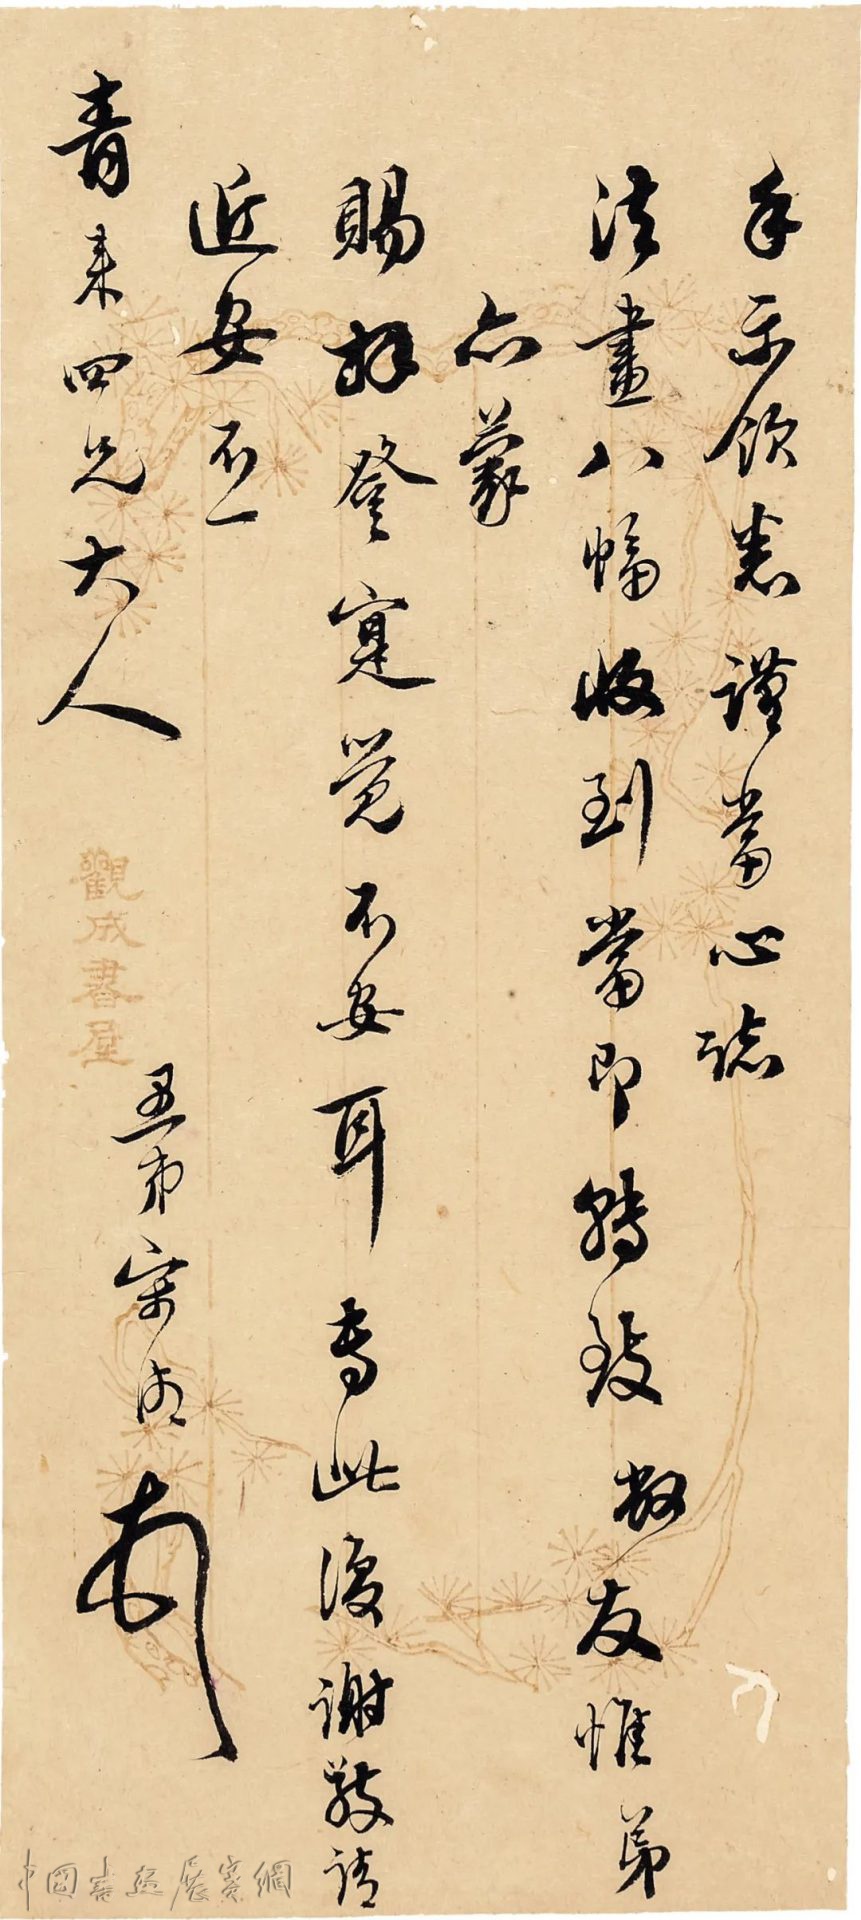 手示領悉謹當心誌
法畫八幅收到當即轉致敝友惟弟
亦蒙
賜拜登寔覺不安耳專此復謝敬請
近安不一
青來四兄大人
愚弟宋
觀成書屋
中國書畫展賽網